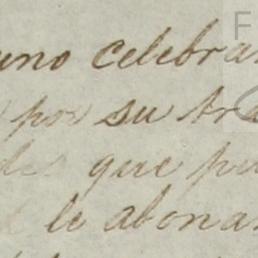 uno celebra
por su tra
que pu
le abona